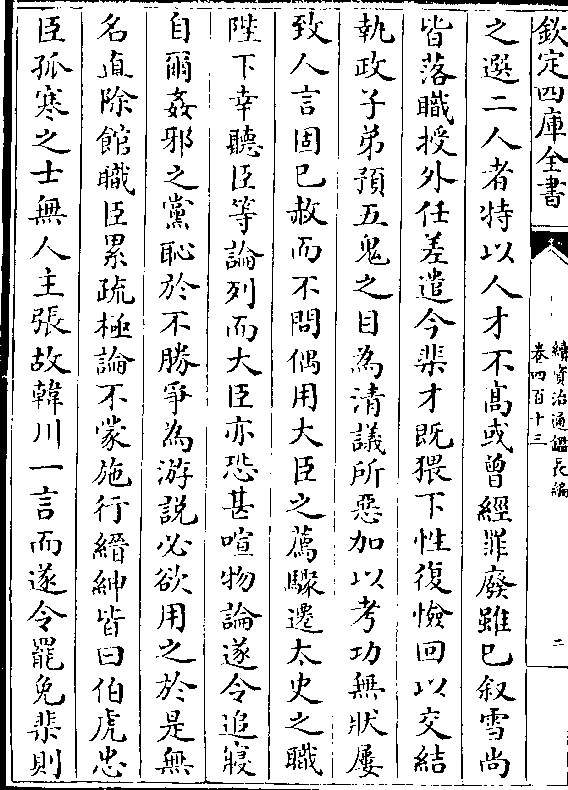 欽定四庫全書
續資治通鑑長編
卷四百十三
二
之選二人者特以人才不髙或曾經罪廢雖已叙雪尚
皆落職授外任差遣今棐才既猥下性復憸回以交結
執政子弟預五鬼之目為清議所惡加以考功無狀屢
致人言固已赦而不問偶用大臣之薦驟遷太史之職
陛下幸聽臣等論列而大臣亦恐甚喧物論遂令追寢
自爾姦邪之黨恥於不勝爭為游説必欲用之於是無
名直除館職臣累疏極論不蒙施行縉紳皆曰伯虎忠
臣孤寒之士無人主張故韓川一言而遂令罷免棐則